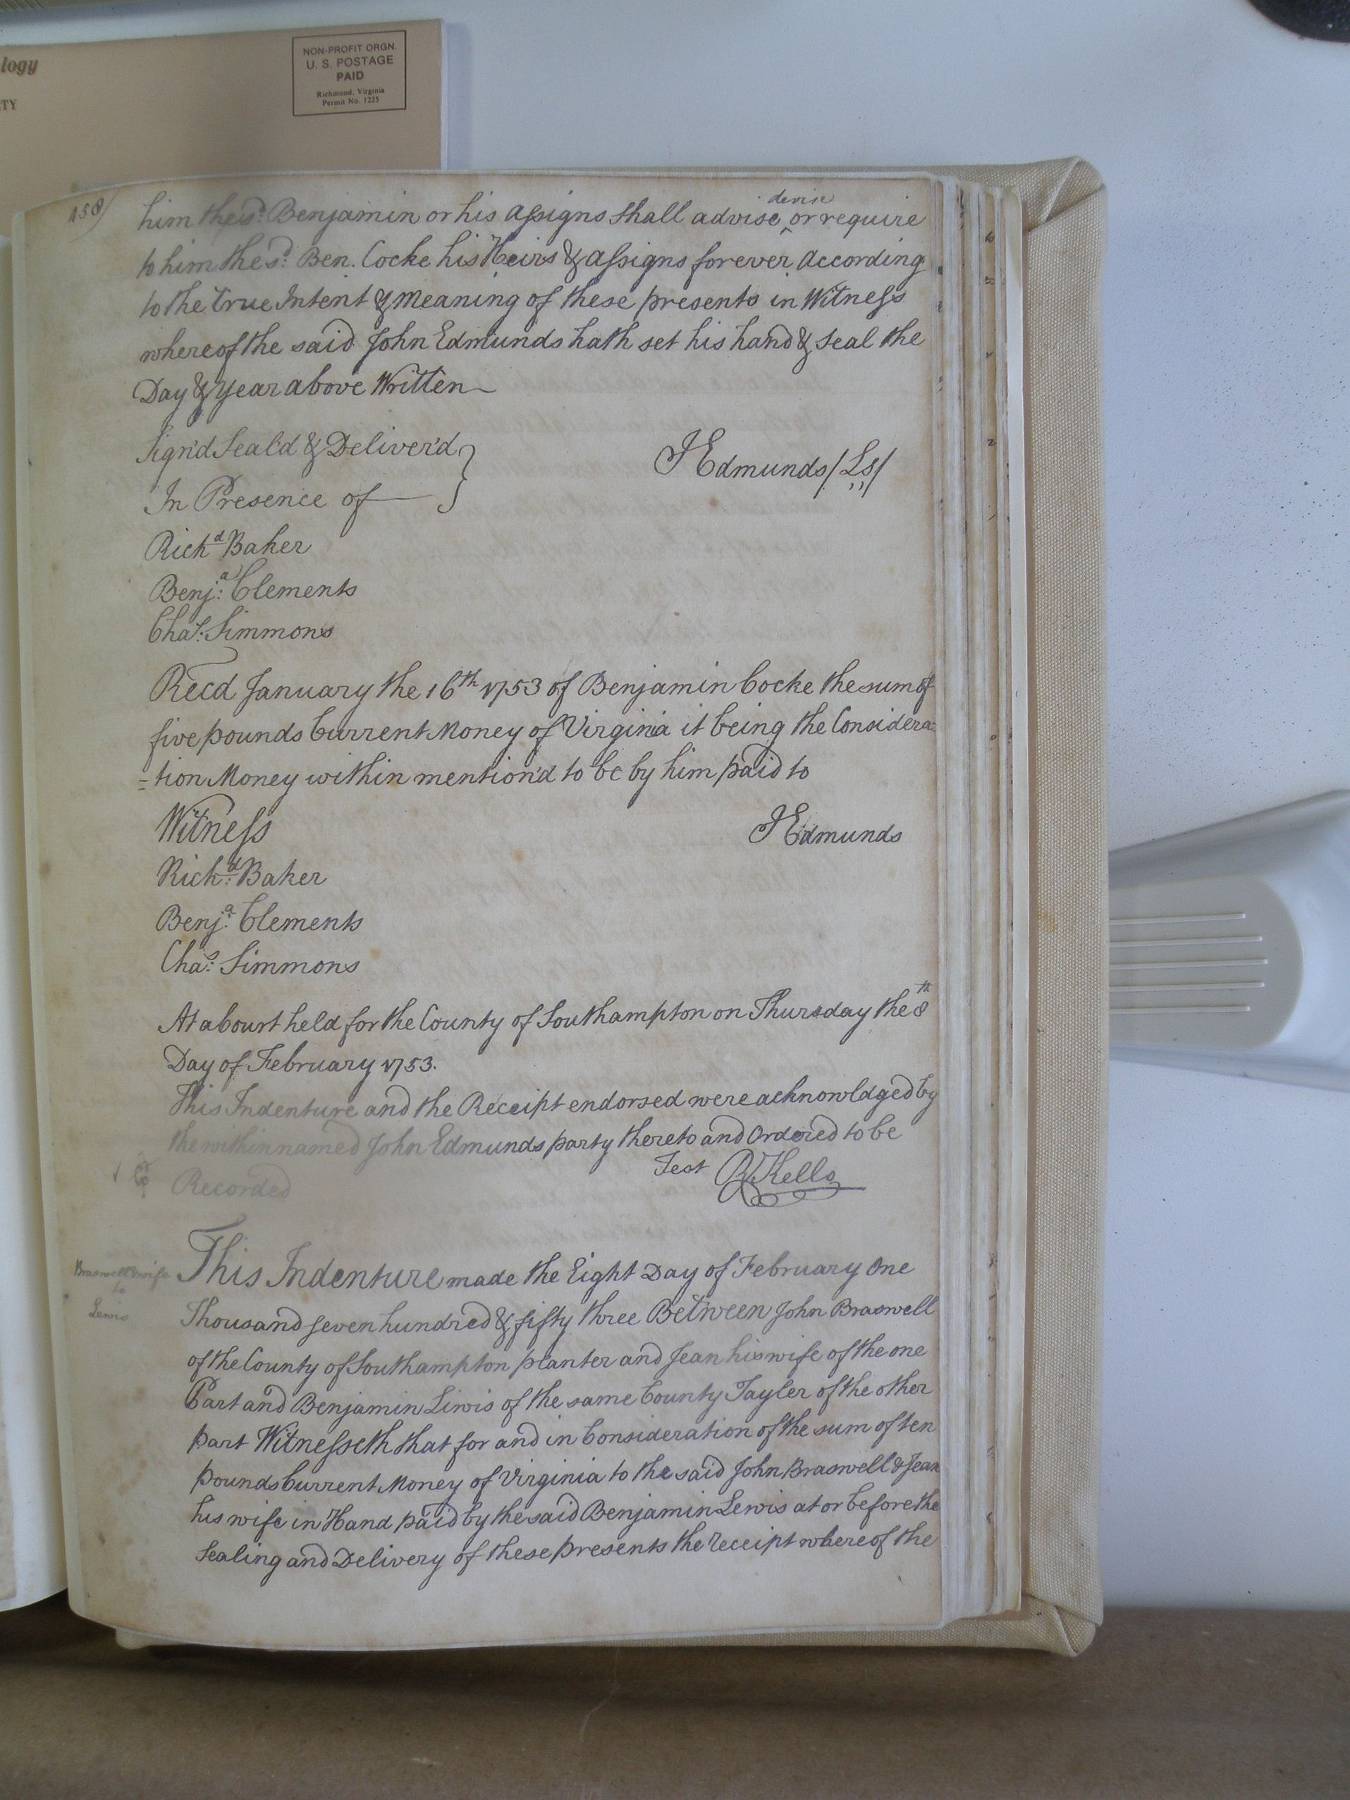 logy
TY
NON-PROFIT ORGN.
U. S. POSTAGE
PAID
Richmond, Virginia
Permit No. 1225
158)
devise
him the sd. Benjamin or his assigns shall advise, ^ or require
to him the sd. Ben. Cocke his Heirs & assigns forever according
to the True Intent & meaning of these presents in Witness
whereof the said John Edmunds hath set his hand & seal the
Day & Year above Written
Sign'd Seal'd & Deliver'd }
In Presence of
J Edmunds / LS /
Richd Baker
Benja. Clements
Chas. Simmons
Recd January the 16th 1753 of Benjamin Cocke the sum of
five pounds Current Money of Virginia it being the Considera=
=tion Money within mention'd to be by him paid to
Witness
J Edmunds
Richd. Baker
Benja. Clements
Chas. Simmons
At a Court held for the County of Southampton on Thursday the 8th
Day of February 1753.
This Indenture and the Receipt endorsed were acknowldged by
the within named John Edmunds party thereto and Ordered to be
Recorded
Test R Kello
Braswell & wife
to
Lewis
This Indenture made the Eight Day of February One
Thousand seven hundred & fifty three Between John Braswell
of the County of Southampton planter and Jean his wife of the one
Part and Benjamin Lewis of the same County Tayler of the other
part Witnesseth that for and in Consideration of the sum of ten
pounds Current Money of Virginia to the said John Braswell & Jean
his wife in Hand paid by the said Benjamin Lewis at or before the
Sealing and Delivery of these presents the receipt whereof the